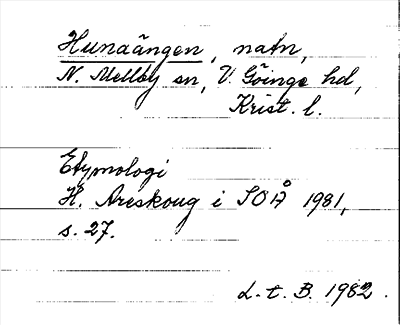 Hunaängen, natn,
N. Mellby sn, V. Göinge hd,
Krist. l.
Etymologi
H. Areskoug i SOÅ 1981,
s. 27.
L.t. B. 1982.